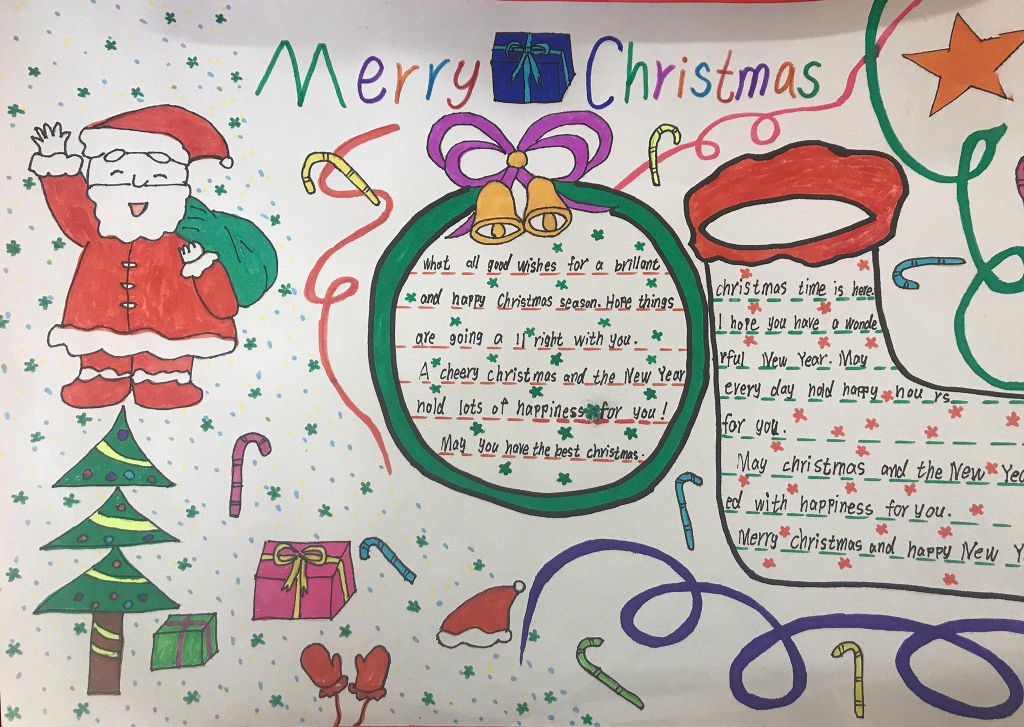 Merry Christmas
what all good wishes for a brillant
and happy Christmas season. Hope things
are going a ll right with you.
A cheery christmas and the New Year
hold lots of happiness for you!
May you have the best christmas.
christmas time is here.
I hope you have a wonde
rful New Year. May
every day hold happy hou rs
for you.
May christmas and the New Yea
ed with happiness for you.
Merry Christmas and happy New Y